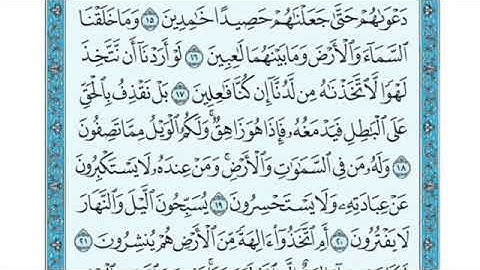 دَعْوَىٰهُمْ حَتَّىٰ جَعَلْنَٰهُمْ حَصِيدًا خَٰمِدِينَ ١٥ وَمَا خَلَقْنَا
ٱلسَّمَآءَ وَٱلْأَرْضَ وَمَا بَيْنَهُمَا لَٰعِبِينَ ١٦ لَوْ أَرَدْنَآ أَن نَّتَّخِذَ
لَهْوًا لَّٱتَّخَذْنَٰهُ مِن لَّدُنَّآ إِن كُنَّا فَٰعِلِينَ ١٧ بَلْ نَقْذِفُ بِٱلْحَقِّ
عَلَى ٱلْبَٰطِلِ فَيَدْمَغُهُۥ فَإِذَا هُوَ زَاهِقٌ ۚ وَلَكُمُ ٱلْوَيْلُ مِمَّا تَصِفُونَ
١٨ وَلَهُۥ مَن فِى ٱلسَّمَٰوَٰتِ وَٱلْأَرْضِ ۚ وَمَنْ عِندَهُۥ لَا يَسْتَكْبِرُونَ
عَنْ عِبَادَتِهِۦ وَلَا يَسْتَحْسِرُونَ ١٩ يُسَبِّحُونَ ٱلَّيْلَ وَٱلنَّهَارَ
لَا يَفْتُرُونَ ٢٠ أَمِ ٱتَّخَذُوٓا۟ ءَالِهَةً مِّنَ ٱلْأَرْضِ هُمْ يُنشِرُونَ ٢١